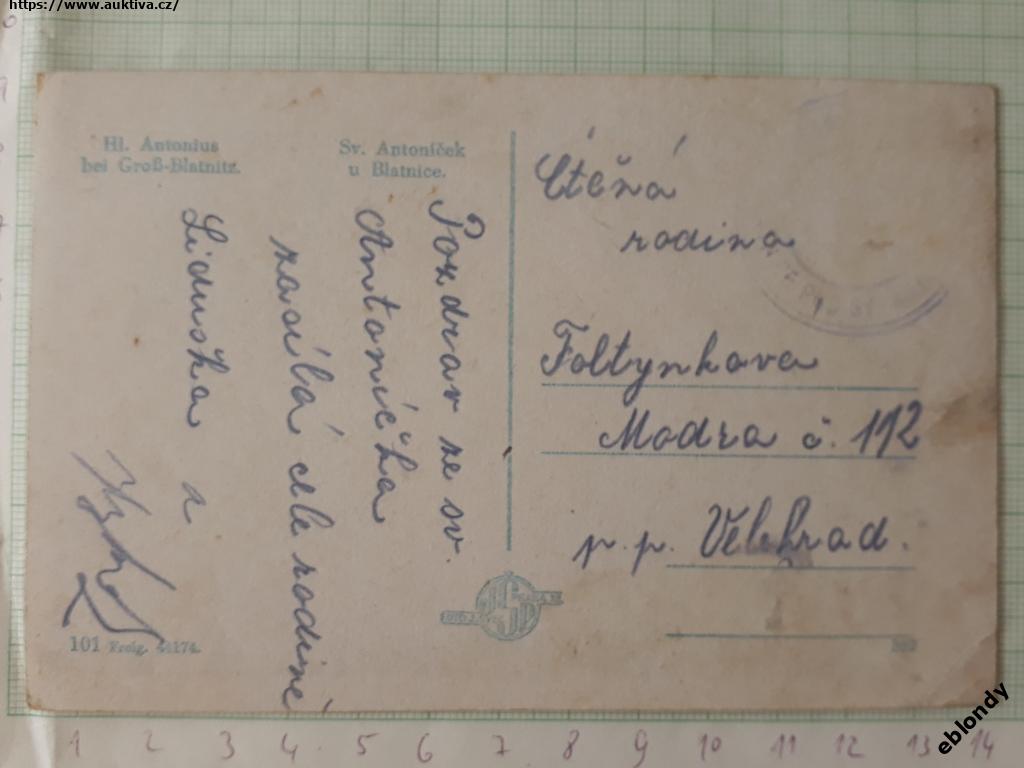 https://www.auktiva.cz/
Hl. Antonius
bei Groß-Blatnitz.
Sv. Antoníček
u Blatnice.
Pozdrav ze sv.
Antoníčka
zasílá celé rodině
Liduška a
Ctěná
rodina
Foltynkova
Modra č. 112
p. p. Velehrad.
101 Freig. 41174.
1 2 3 4 5 6 7 8 9 10 11 12 13 14
eblondy